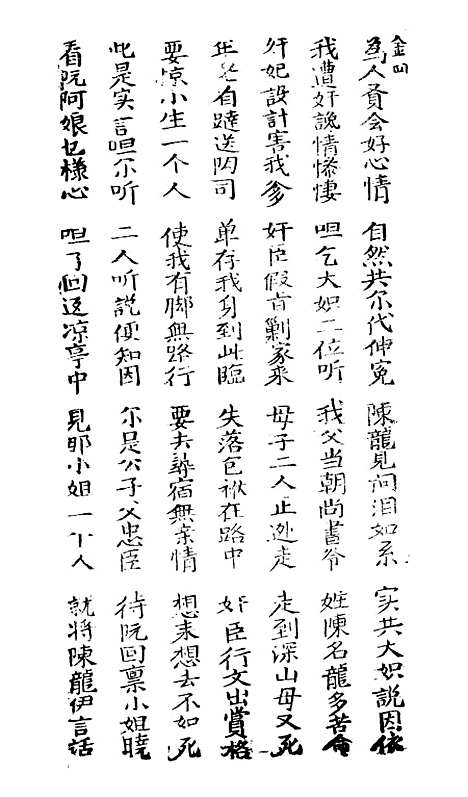 金四
為人貪会好心情 自然共尔代伸冤 陳龍見问泪如系 实共大姐説因依
我遭奸讒情惨悽 呾乞大姐二位听 我父当朝尚書爷 姓陳名龍多苦命
奸妃設計害我爹 奸臣假旨剿家来 母子二人走 走到深山母又死
自送阴司 单存我身到此臨 失落包袱在路中 奸臣行文出賞格
要掠小生一个人 使我有脚無路行 要去尋宿無亲情 想来想去不如死
此是实言呾尔听 二人听説便知因 尔是公子父忠臣 待阮回禀小姐曉
看阮阿娘乜樣心 呾了回返凉亭中 見那小姐一个人 就将陳龍伊言話